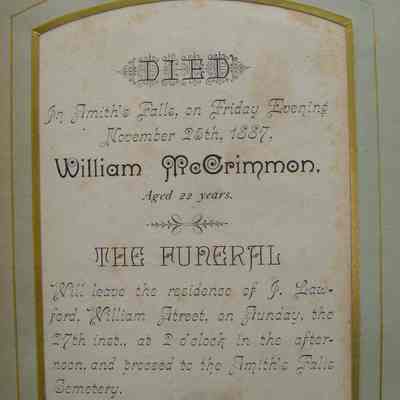 DIED
In Smith's Falls, on Friday Evening
November 25th, 1887,
William McCrimmon,
Aged 22 years.
THE FUNERAL
Will leave the residence of J. Law-
ford, William Street, on Sunday, the
27th inst., at 2 o'clock in the after-
noon, and proceed to the Smith's Falls
Cemetery.